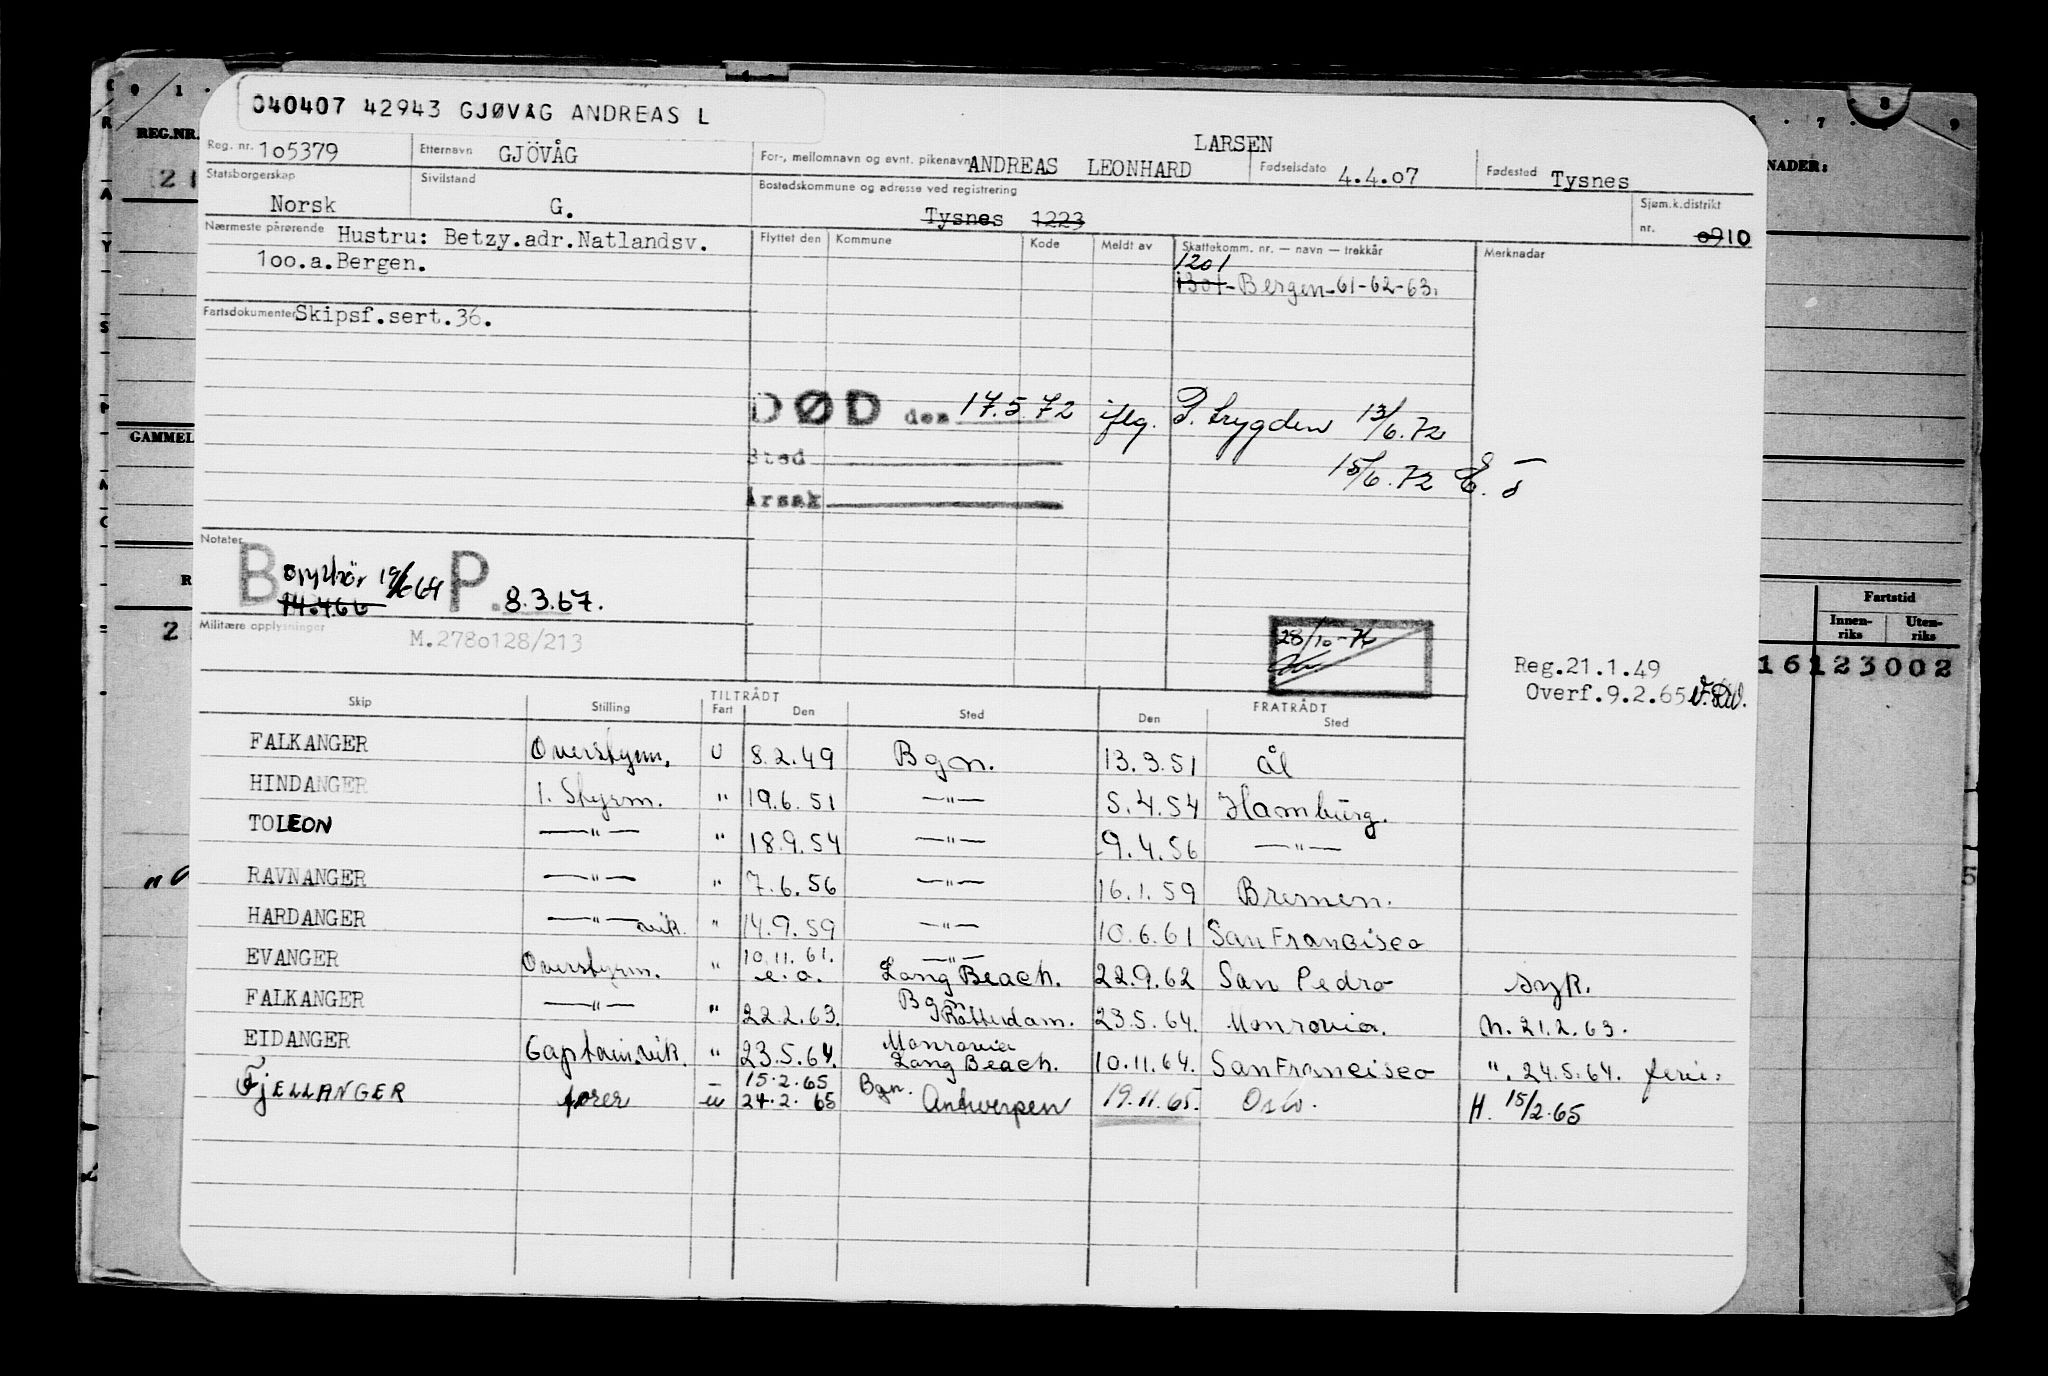 040407 42943 GJØVÅG ANDREAS L
REG.NR.
NADER:
Reg. nr. 1o5379 Etternavn GJÖVÅG For-, mellomnavn og evnt. pikenavn ANDREAS LEONHARD LARSEN Fødselsdato 4.4.o7 Fødested Tysnes
Statsborgerskap Norsk Sivilstand G. Bostedskommune og adresse ved registrering Tysnes 1223 Sjøm.k.distrikt nr. o910
Nærmeste pårørende Hustru: Betzy.adr.Natlandsv. Flyttet den Kommune Kode Meldt av Skattekomm. nr. — navn — trekkår Merknadar
1oo.a.Bergen. 1201
1301-Bergen-61-62-63.
Fartsdokumenter Skipsf.sert.36.
DØD den 17.5.72 iflg. P. trygden 13/6.72
GAMMEL
Sted 15/6.72 E.
Årsak
Notater
B 19/6 64 P. 8.3.67.
14.466
Militære opplysninger M.278o128/213
28/10-76
Fartstid
Innen-riks Uten-riks
16123002
Reg.21.1.49
Overf.9.2.65
Skip Stilling TILTRÅDT Fart Den Sted FRATRÅDT Den Sted
FALKANGER Overstyrm. U 8.2.49 Bgn. 13.3.51 Ål
HINDANGER 1. Styrm. " 19.6.51 —"— 5.4.54 Hamburg.
TOLEON —"— " 18.9.54 —"— 9.4.56 —"—
RAVNANGER —"— " 7.6.56 —"— 16.1.59 Bremen.
HARDANGER —"— vik. " 14.9.59 —"— 10.6.61 San Francisco
EVANGER Overstyrm. " 10.11.61. e.o. —"— Long Beach. 22.9.62 San Pedro syk.
FALKANGER —"— " 22.2.63. Bgn Rotterdam. 23.5.64. Monrovia. N. 21.2.63.
EIDANGER Captein vik. " 23.5.64. Monrovia Long Beach. 10.11.64. San Francisco ". 24.5.64. ferie.
FJELLANGER fører — u 15.2.65 24.2.65 Bgn. Antwerpen 19.11.65. Oslo. H. 15/2.65